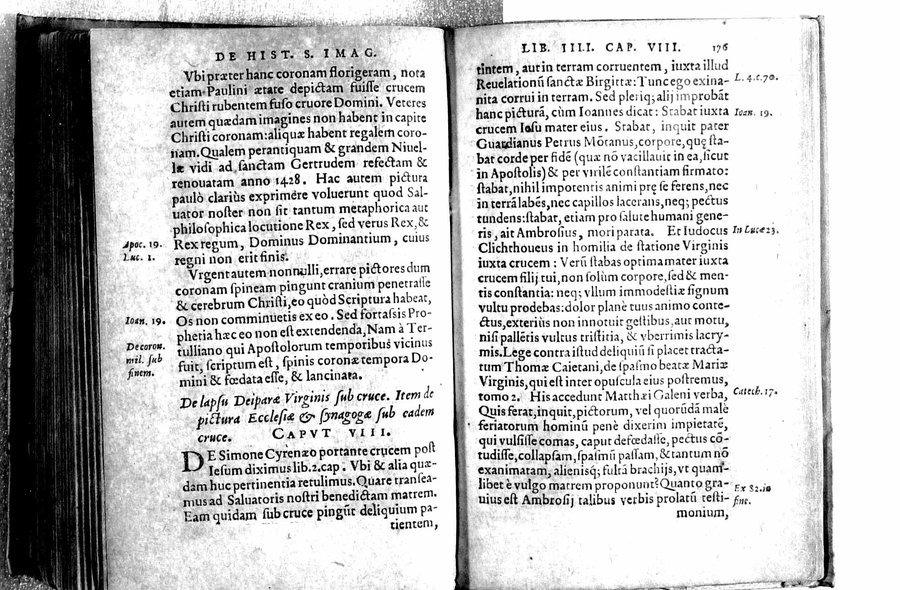 DE HIST. S. IMAG.
Vbi præter hanc coronam florigeram, nota
etiam Paulini ætate depictam fuiſſe crucem
Chriſti rubentem fuſo cruore Domini. Veteres
autem quædam imagines non habent in capite
Chriſti coronam: aliquæ habent regalem coro-
nam. Qualem perantiquam & grandem Niuel-
læ vidi ad ſanctam Gertrudem refectam &
renouatam anno 1428. Hac autem pictura
paulò clariùs exprimere voluerunt quod Sal-
uator noſter non ſit tantum metaphorica aut
philoſophica locutione Rex, ſed verus Rex, &
Apoc. 19. Rex regum, Dominus Dominantium, cuius
Luc. 1. regni non erit finis.
Vrgent autem nonnulli, errare pictores dum
coronam ſpineam pingunt cranium penetraſſe
& cerebrum Chriſti, eo quòd Scriptura habeat,
Ioan. 19. Os non comminuetis ex eo. Sed fortaſsis Pro-
phetia hæc eo non eſt extendenda, Nam à Ter-
De coron. tulliano qui Apoſtolorum temporibus vicinus
mil. ſub fuit, ſcriptum eſt, ſpinis coronæ tempora Do-
finem. mini & fœdata eſſe, & lancinata.
De lapſu Deiparæ Virginis ſub cruce. Item de
pictura Eccleſiæ & ſynagogæ ſub eadem
cruce. CAPVT VIII.
DE Simone Cyrenæo portante crucem poſt
Ieſum diximus lib. 2. cap. Vbi & alia quæ-
dam huc pertinentia retulimus. Quare tranſea-
mus ad Saluatoris noſtri benedictam matrem.
Eam quidam ſub cruce pingūt deliquium pa-
tientem,
LIB. IIII. CAP. VIII. 176
tintem, aut in terram corruentem, iuxta illud
Reuelationū ſanctæ Birgittæ: Tunc ego exina- L. 4. c. 70.
nita corrui in terram. Sed pleriq; alij improbāt
hanc picturā, cùm Ioannes dicat: Stabat iuxta Ioan. 19.
crucem Ieſu mater eius. Stabat, inquit pater
Guardianus Petrus Mōtanus, corpore, quę ſta-
bat corde per fidē (quæ nō vacillauit in ea, ſicut
in Apoſtolis) & per virilē conſtantiam firmato:
ſtabat, nihil impotentis animi præ ſe ferens, nec
in terrā labēs, nec capillos lacerans, neq; pectus
tundens: ſtabat, etiam pro ſalute humani gene-
ris, ait Ambroſius, mori parata. Et Iudocus In Lucæ 23.
Clichthoueus in homilia de ſtatione Virginis
iuxta crucem: Verū ſtabas optima mater iuxta
crucem filij tui, non ſolùm corpore, ſed & men-
tis conſtantia: neq; vllum immodeſtiæ ſignum
vultu prodebas: dolor planè tuus animo conte-
ctus, exteriùs non innotuit geſtibus, aut motu,
niſi pallētis vultus triſtitia, & vberrimis lacry-
mis. Lege contra iſtud deliquiū ſi placet tracta-
tum Thomæ Caietani, de ſpaſmo beatæ Mariæ
Virginis, qui eſt inter opuſcula eius poſtremus,
tomo 2. His accedunt Matthæi Galeni verba, Catech. 17.
Quis ferat, inquit, pictorum, vel quorūdā malè
feriatorum hominū penè dixerim impietatē,
qui vulſiſſe comas, caput defœdaſſe, pectus cō-
tudiſſe, collapſam, ſpaſmū paſſam, & tantum nō
exanimatam, alieniſq; fultā brachijs, vt quam-
libet è vulgo matrem proponunt? Quanto gra- Ex 82. in
uius eſt Ambroſij talibus verbis prolatū teſti- fine.
monium,